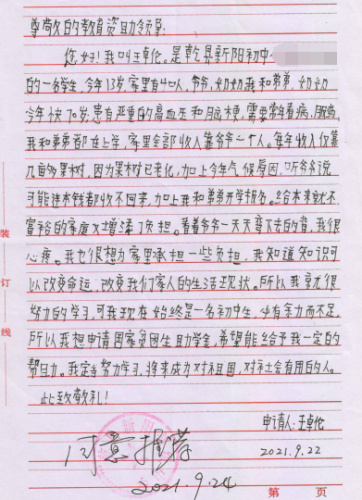 尊敬的教育资助领导:
您好!我叫王卓伦。是乾县新阳初中
的一名学生,今年13岁,家里有4口人,爷爷,奶奶我和弟弟,奶奶
今年快70岁,患有严重的高血压和脑梗,需要常看病,服药,
我和弟弟都在上学,家里全部收入靠爷爷一个人。每年收入仅靠
几亩苹果树,因为果树已老化,加上今年气候原因,听爷爷说
可能连本钱都收不回来,加上我和弟弟开学报名。给本来就不
富裕的家庭又增添了负担。看着爷爷一天天弯下去的背,我很
心疼。我也很想为家里承担一些负担,我知道知识可
以改变命运,改变我们家人的生活现状。所以我竟很
努力的学习,可我现在始终是一名初中生,心有余力而不足,
所以我想申请国家贫困生助学金,希望能给予我一定的
帮助。我定会努力学习,将来成为对祖国,对社会有用的人。
此致敬礼!
申请人:王卓伦
2021.9.22
同意推荐
2021.9.24
装
订
线
第 页